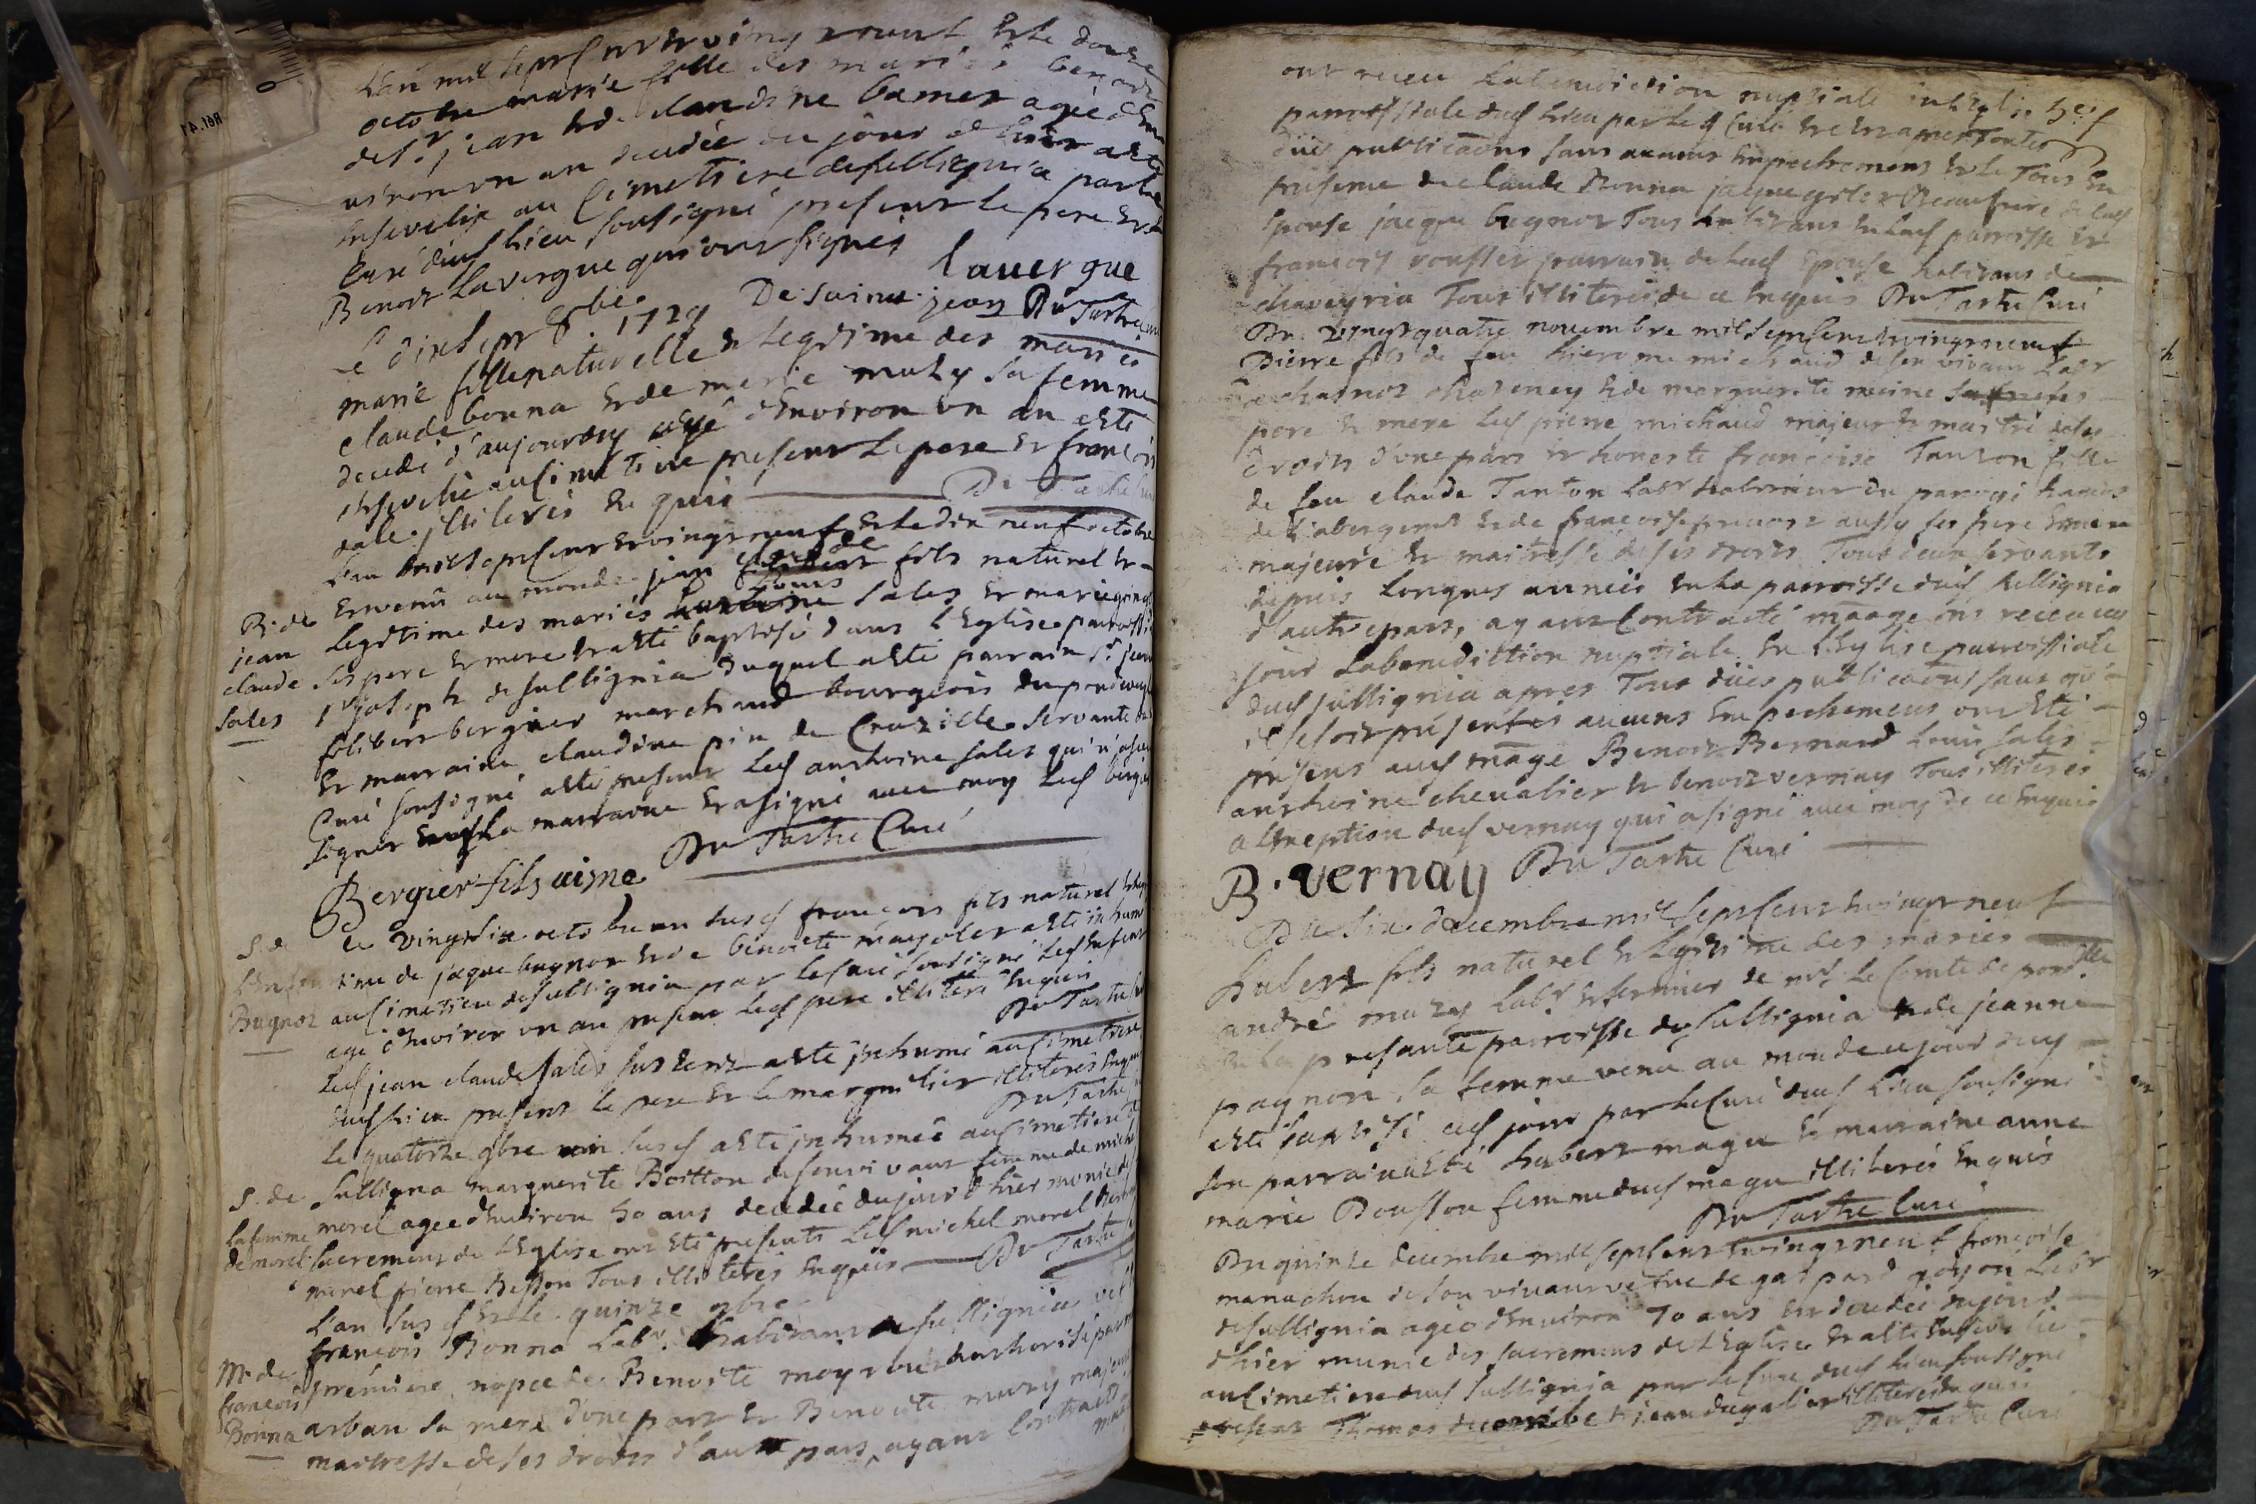 L'an mil sept cent et vingt neuf et le douze
octobre marie fille des mariés benoit
de St jean et de claudine bamet agée d'en
viron un an decedée du jour d'hier a esté
ensevelie au Cimetiere de sullignia par le
Curé dud lieu soussigné present le pere et
Benoit Lavergne qui ont signés lavergne
De. saint. jean Du Tartre curé
Le dix sept 8bre. 1729
marie fille naturelle et legitime des mariés
claude bonna et de marie muzy sa femme
decedé d'aujourdhuy agé d'environ un an esté
ensevelie au Cimetiere present le pere et francois
sale. illiterés en quis Du Tartre Curé
L'an mil sept cent et vingt neuf et le dix neuf octobre
B. de est venu au monde jean claude fils naturel et
jean legitime des mariés Louis sales et marie
claude ses pere et mere et a esté baptisé dans l'Eglise paroissi
sales St joseph de sullignia duquel a esté parrain Sr jean
filibert bergier marchand bourgeois du pondevaux
et marraine claudine pin de Cruzille servante
Curé soussigné a esté present led anthoine sales qui n'a seu
signer la marraine et a signé avec moy led bergier
Bergier fils aisne Du Tartre Curé
S. de Le vingt six octobre an susd francois fils naturel et
L'enfan time de jaque bugnot et de benoite a esté inhum
Bugnot au Cimetiere de sullignia par le curé soussigné led enfant
agé d'environ un an present led pere illiteré enquis
Du Tartre
Led jean claude sales susd a esté inhumé au Cimetiere
dud lieu present le pere et le margulier illiterés enquis
Du Tartre
Le quatorze 9bre susd a esté inhumée au Cimetiere
S. de sullignia marguerite Boitton de son vivant femme de michel
la femme morel agée d'environ 50 ans decedée du jour d'hier munie des
de morel sacremens de l'Eglise ont esté presents led michel morel
morel pierre Besson Tous illiterés enquis Du Tartre
L'an susd et le quinze 9bre
francois Bonna Labr. habitant de sullignia
M. de premiere nopce de Benoite authorisé
francois arban sa mere d'une part et Benoite muzy majeure
Bonna maitresse de ses droits d'autre part, ayant contracté
ont receu la benediction nuptiale en l'Eglise
parroissiale dud lieu par led Curé et ce apres Toutes
dües publications sans aucuns empechemens et le Tous en
presence de claude Bonna jaque beaufrere de lad
Epouse jacque bugnot Tous habitans en lad parroisse et
francois rousset parrain de lad Epouse habitans de
chaveyria Tous illiterés de ce enquis Du Tartre Curé
Du. vingt quatre novembre mil sept cent et vingt neuf
Pierre fils de feu hierome michaud de son vivant Labr
a chasney et de marguerite ses
pere et mere led pierre michaud majeur et maitre de ses
droits d'une part et honeste francoise Tanton fille
de feu claude Tanton Labr
de l'abergement et de francoise aussy ses pere et mere
majeure et maitresse de ses droits Tous deux servants
depuis longues années en la parroisse dud sullignia
d'autre part, ayant Contracté maage ont receu ce
jour la benediction nuptiale en l'Eglise parroissiale
dud sullignia apres Tous dües publications sans qu'
il se soit presentés aucuns empechemens ont esté
presens aud mage Benoit Bernard Louis sales
anthoine chevalier et benoit vernay Tous illiterés
a l'exeption dud vernay qui a signé avec moy de ce enquis
B. vernay Du Tartre Curé
Du six decembre mil sept cent et vingt neuf
hubert fils naturel et legitime des mariés
andré muzy labr et fermier de mr Le Comte de
en la presante parroisse de sullignia et de jeanne
pagnon sa femme venu au monde ce jour dhuy
esté baptisé ced jour par le Curé dud lieu soussigné
son parrain a esté hubert magu et marraine anne
marie Bousson femme dud magu illiterés enquis
Du Tartre Curé
Du quinze decembre mil sept cent et vingt neuf francoise
manachon de son vivant vefve de gaspard goyon Labr
de sullignia agée d'environ 70 ans est decedée du jour
d'hier munie des sacremens de l'Eglise et a esté ensevelie
au Cimetiere dud sullignia par le Curé dud lieu soussigné
present Thomas et jean dugalier illiterés enquis
Du Tartre Curé